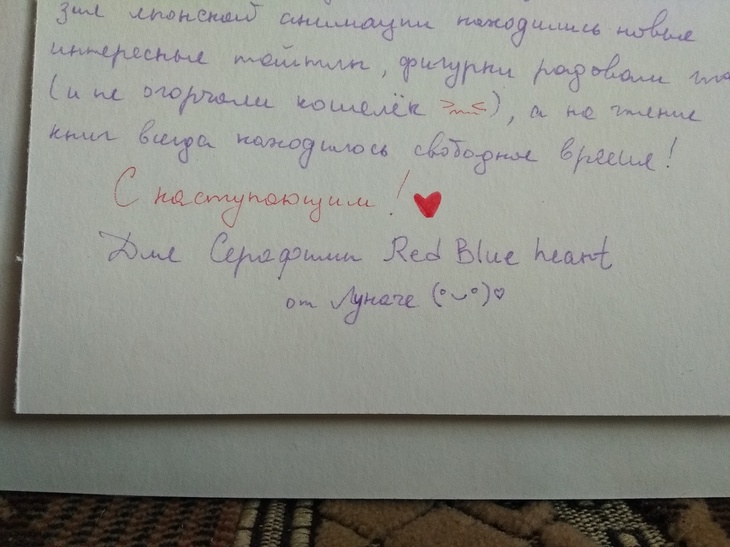 зме японской анимации находились новые
интересные тайтлы, фигурки радовали гла
(и не огорчали кошелёк >﹏<), а на чтение
книг всегда находилось свободное время!
С наступающим! ♥
Для Серафимы Red Blue heart
от Луначе (°◡°)♡